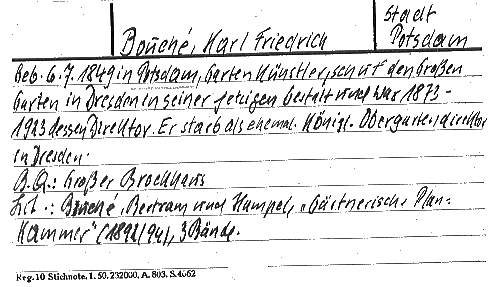 Stadt
Potsdam
Bouché, Karl Friedrich
Geb. 6.7.1849 in Potsdam, Gartenkünstler, schuf den Großen
Garten in Dresden in seiner jetzigen Gestalt und war 1873-
1923 dessen Direktor. Er starb als ehemal. Königl. Obergartendirektor
in Dresden.
B.Q.: Großer Brockhaus
Lit.: Bouché, Bertram und Hampel, „Gärtnerische Plan-
Kammer" (1892/94), 3 Bände.
Reg. 10 Stichnote. 1. 50. 232000. A. 803. S. 4662